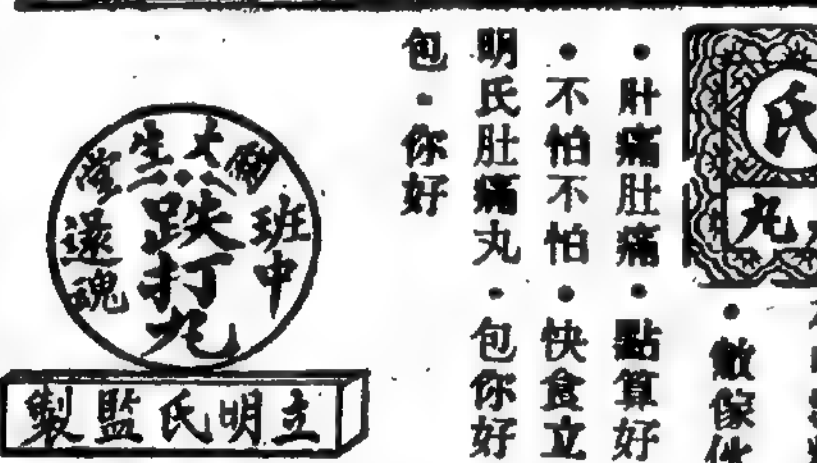 氏
丸
敵傢伙
肚痛肚痛・點算好
・不怕不怕・快食立
明氏肚痛丸・包你好
包・你好
關大生堂
班中
跌打丸
還魂
立明氏監製